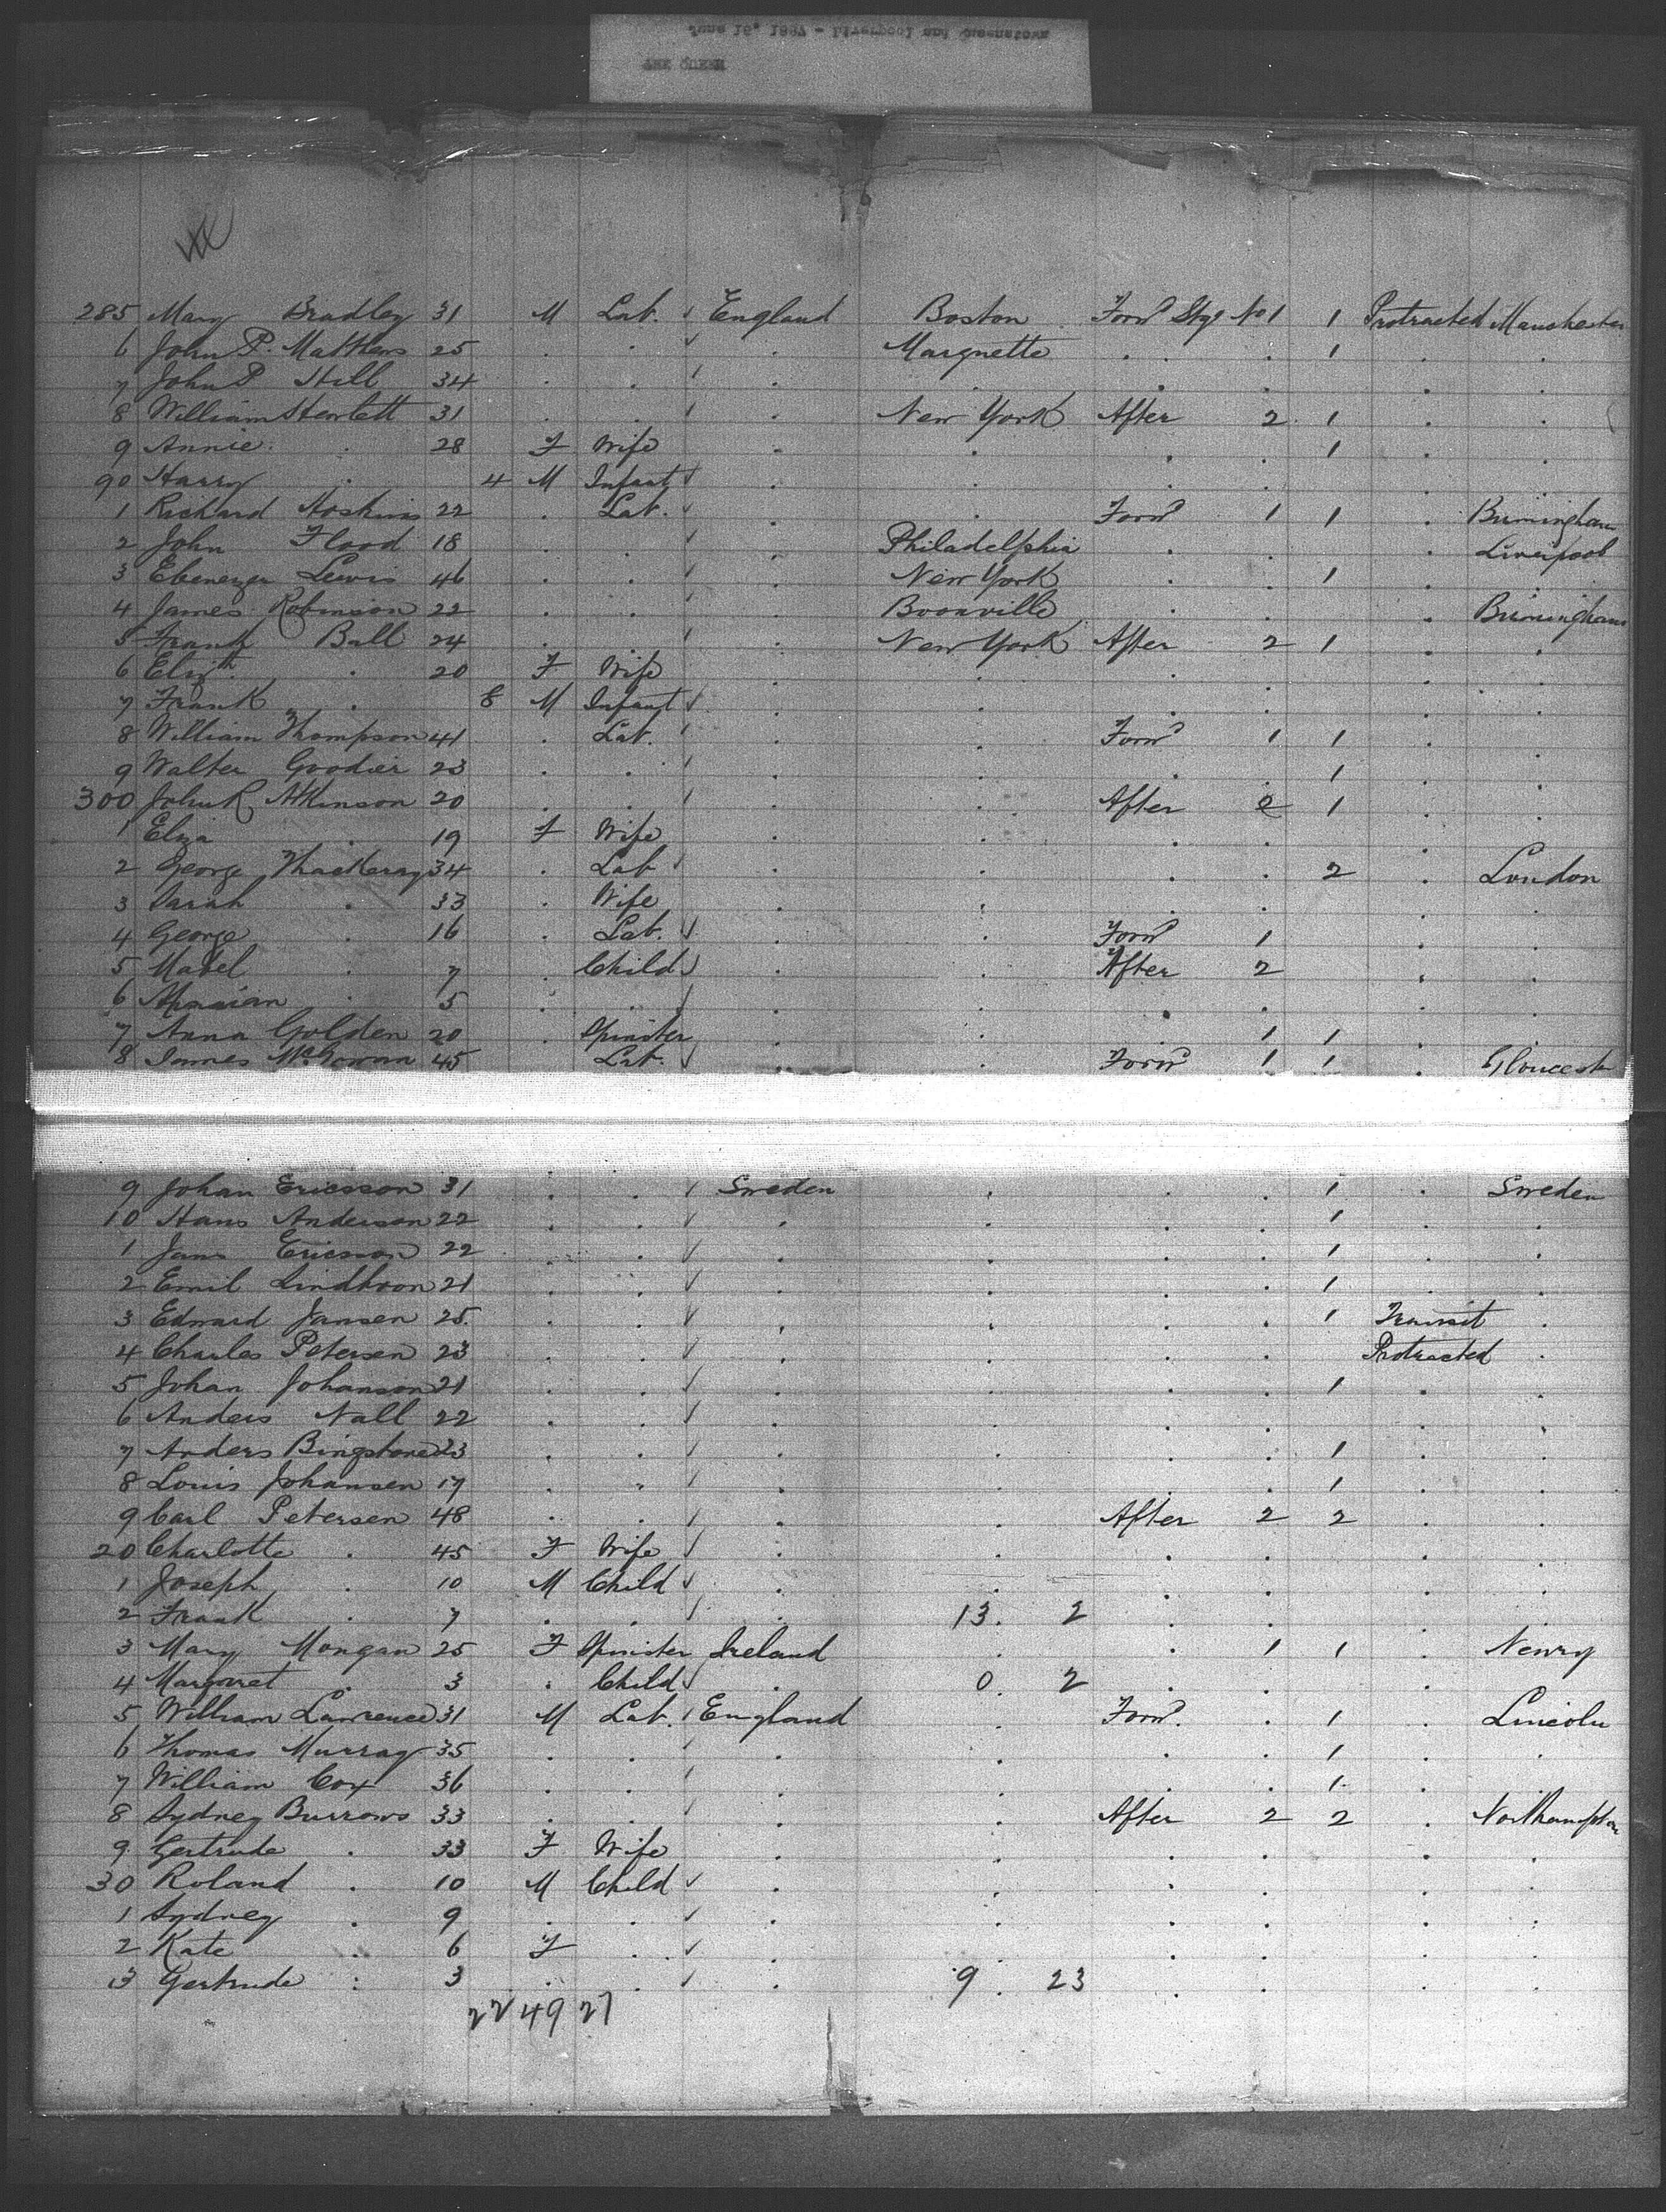 June 15, 1887 - Liverpool and Queenstown
THE QUEEN
285 Mary Bradley 31 M Lab. England Boston Forw'd Stge No 1 1 Protracted Manchester
6 John P. Matthews 25 . . . Marquette . . . 1 . .
7 John P Hill 34 . . . . . . .
8 William Hewlett 31 . . . New York After 2 1 . .
9 Annie . 28 F Wife . . . . 1 . .
90 Harry . 4 M Infant . . . . . .
1 Richard Hoskins 22 . Lab. . . Forw'd 1 1 . Birmingham
2 John Flood 18 . . . Philadelphia . . . Liverpool
3 Ebenezer Lewis 46 . . . New York . . 1 . .
4 James Robinson 22 . . . Boonville . . . Birmingham
5 Frank Ball 24 . . . New York After 2 1 . .
6 Elizth . 20 F Wife . . . . . .
7 Frank . 8 M Infant . . . . . .
8 William Thompson 41 . Lab. . . Forw'd 1 1 . .
9 Walter Goodier 23 . . . . . . 1 . .
300 John R Atkinson 20 . . . . After 2 1 . .
1 Eliza . 19 F Wife . . . . . .
2 George Thackeray 34 . Lab . . . . 2 . London
3 Sarah . 33 . Wife . . . . . .
4 George . 16 . Lab. . . Forw'd 1 . .
5 Mabel . 7 . Child . . After 2 . .
6 . 5 . . . . . . . .
7 Anna Golden 20 . Spinster . . 1 1 . .
8 James McGowan 45 Lab. . . Forw'd 1 1 . Gloucest
9 Johan Ericsson 31 . . Sweden . . . 1 . Sweden
10 Hans Anderson 22 . . . . . . 1 . .
1 Jans Ericsson 22 . . . . . . 1 . .
2 Emil 21 . . . . . . 1 . .
3 Edward Jansen 25. . . . . . . 1 Transit .
4 Charles Petersen 23 . . . . . . Protracted .
5 Johan Johanson 21 . . . . . . 1 . .
6 Anders Nall 22 . . . . . . . .
7 Anders 23 . . . . . . 1 . .
8 Louis Johansen 19 . . . . . . 1 . .
9 Carl Petersen 48 . . . . After 2 2 . .
20 Charlotte . 45 F Wife . . . . . .
1 Joseph . 10 M Child . . . . . .
2 Frank . 7 . . . 13. 2 . . . .
3 Mary Mongan 25 F Spinster Ireland . . 1 1 . Newry
4 Margaret . 3 . Child . 0. 2 . . . .
5 William Lawrence 31 M Lab. England . Forw'd. . 1 . Lincoln
6 Thomas Murray 35 . . . . . . 1 . .
7 William Cox 36 . . . . . . 1 . .
8 Sydney Burrows 33 . . . . After 2 2 . Northampton
9 Gertrude . 33 F Wife . . . . . .
30 Roland . 10 M Child . . . . . .
1 Sydney . 9 . . . . . . . .
2 Kate . 6 F . . . . . . .
3 Gertrude . 3 . . . 9. 23 . . . .
22 49 27